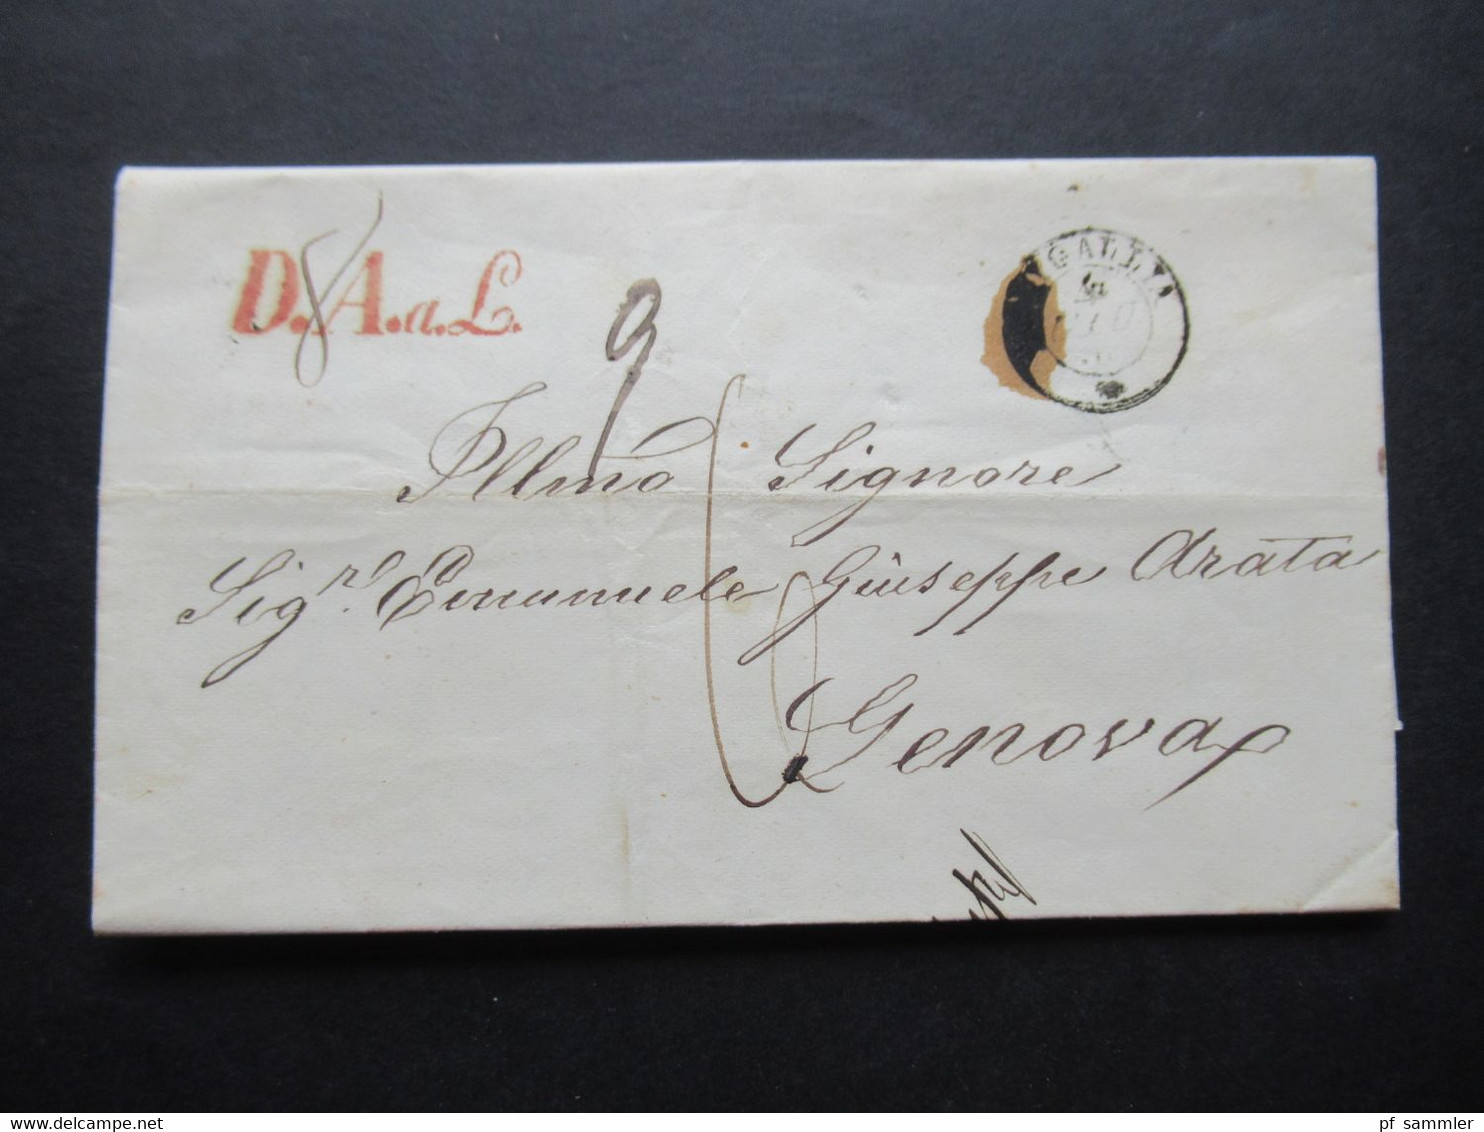 D. A. a. L.
8
9
Illmo Signore
Sigr. Emanuele Giuseppe Arata
Genova
www.delcampe.net
pf_sammler